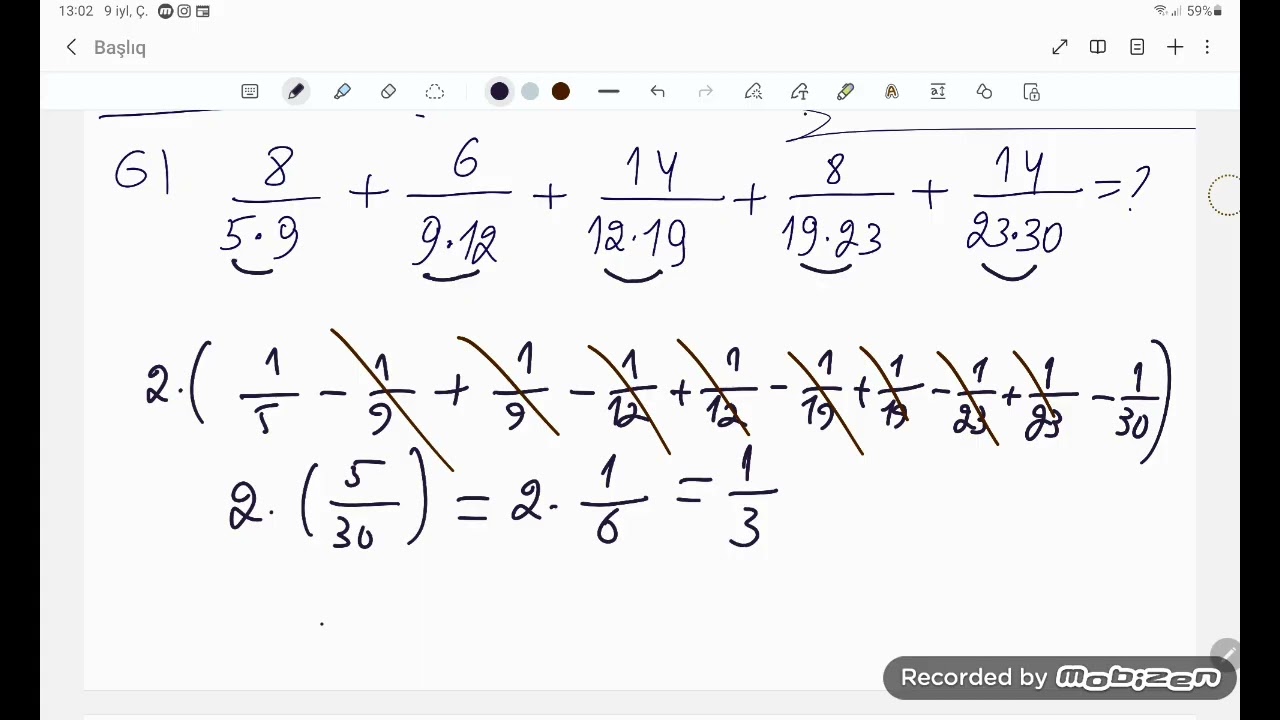 13:02 9 iyl, Ç. 59%
Başlıq
6) 8/(5·9) + 6/(9·12) + 14/(12·19) + 8/(19·23) + 14/(23·30) = ?
2·(1/5 - 1/9 + 1/9 - 1/12 + 1/12 - 1/19 + 1/19 - 1/23 + 1/23 - 1/30)
2·(5/30) = 2·1/6 = 1/3
Recorded by mobizen